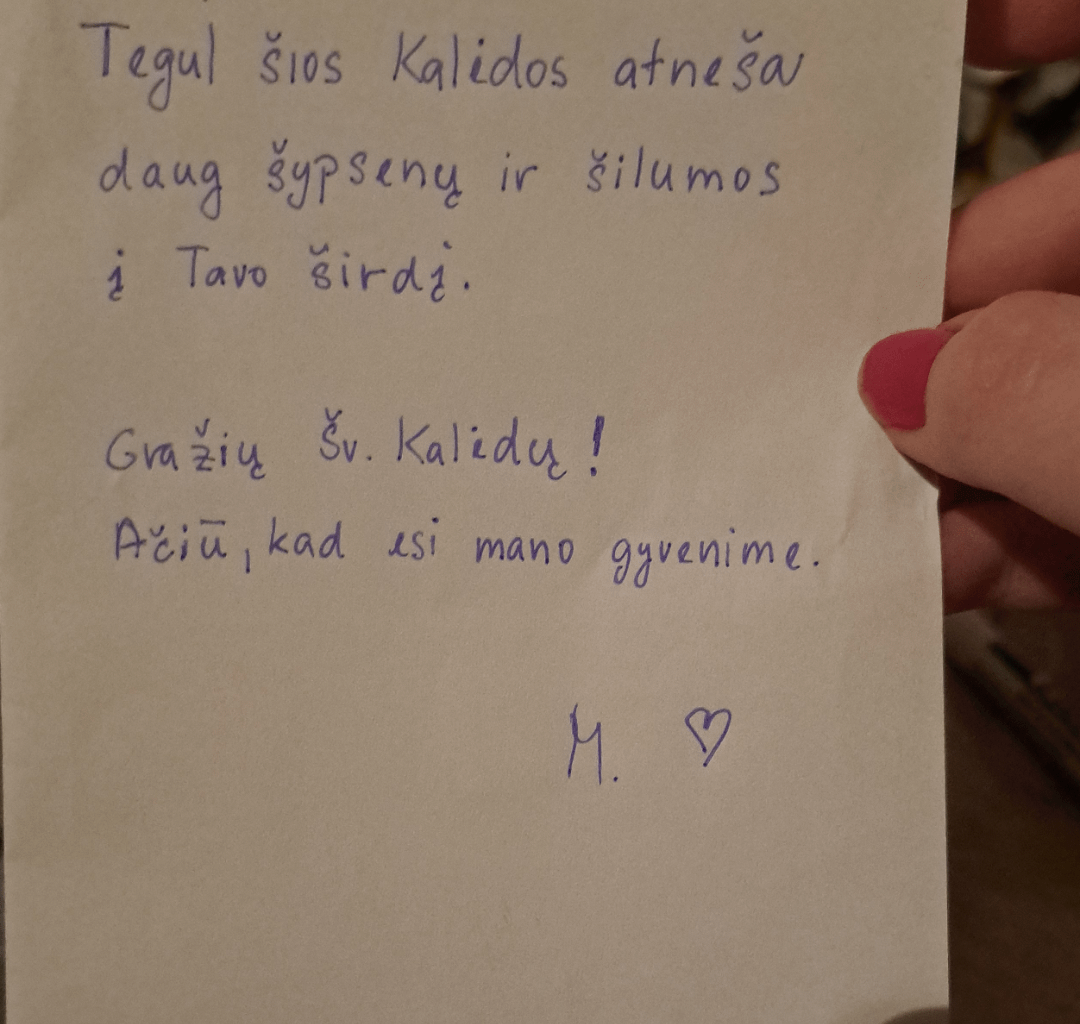 Tegul šios Kalėdos atneša
daug šypsenų ir šilumos
į Tavo širdį.
Gražių Šv. Kalėdų!
Ačiū, kad esi mano gyvenime.
M. ♡